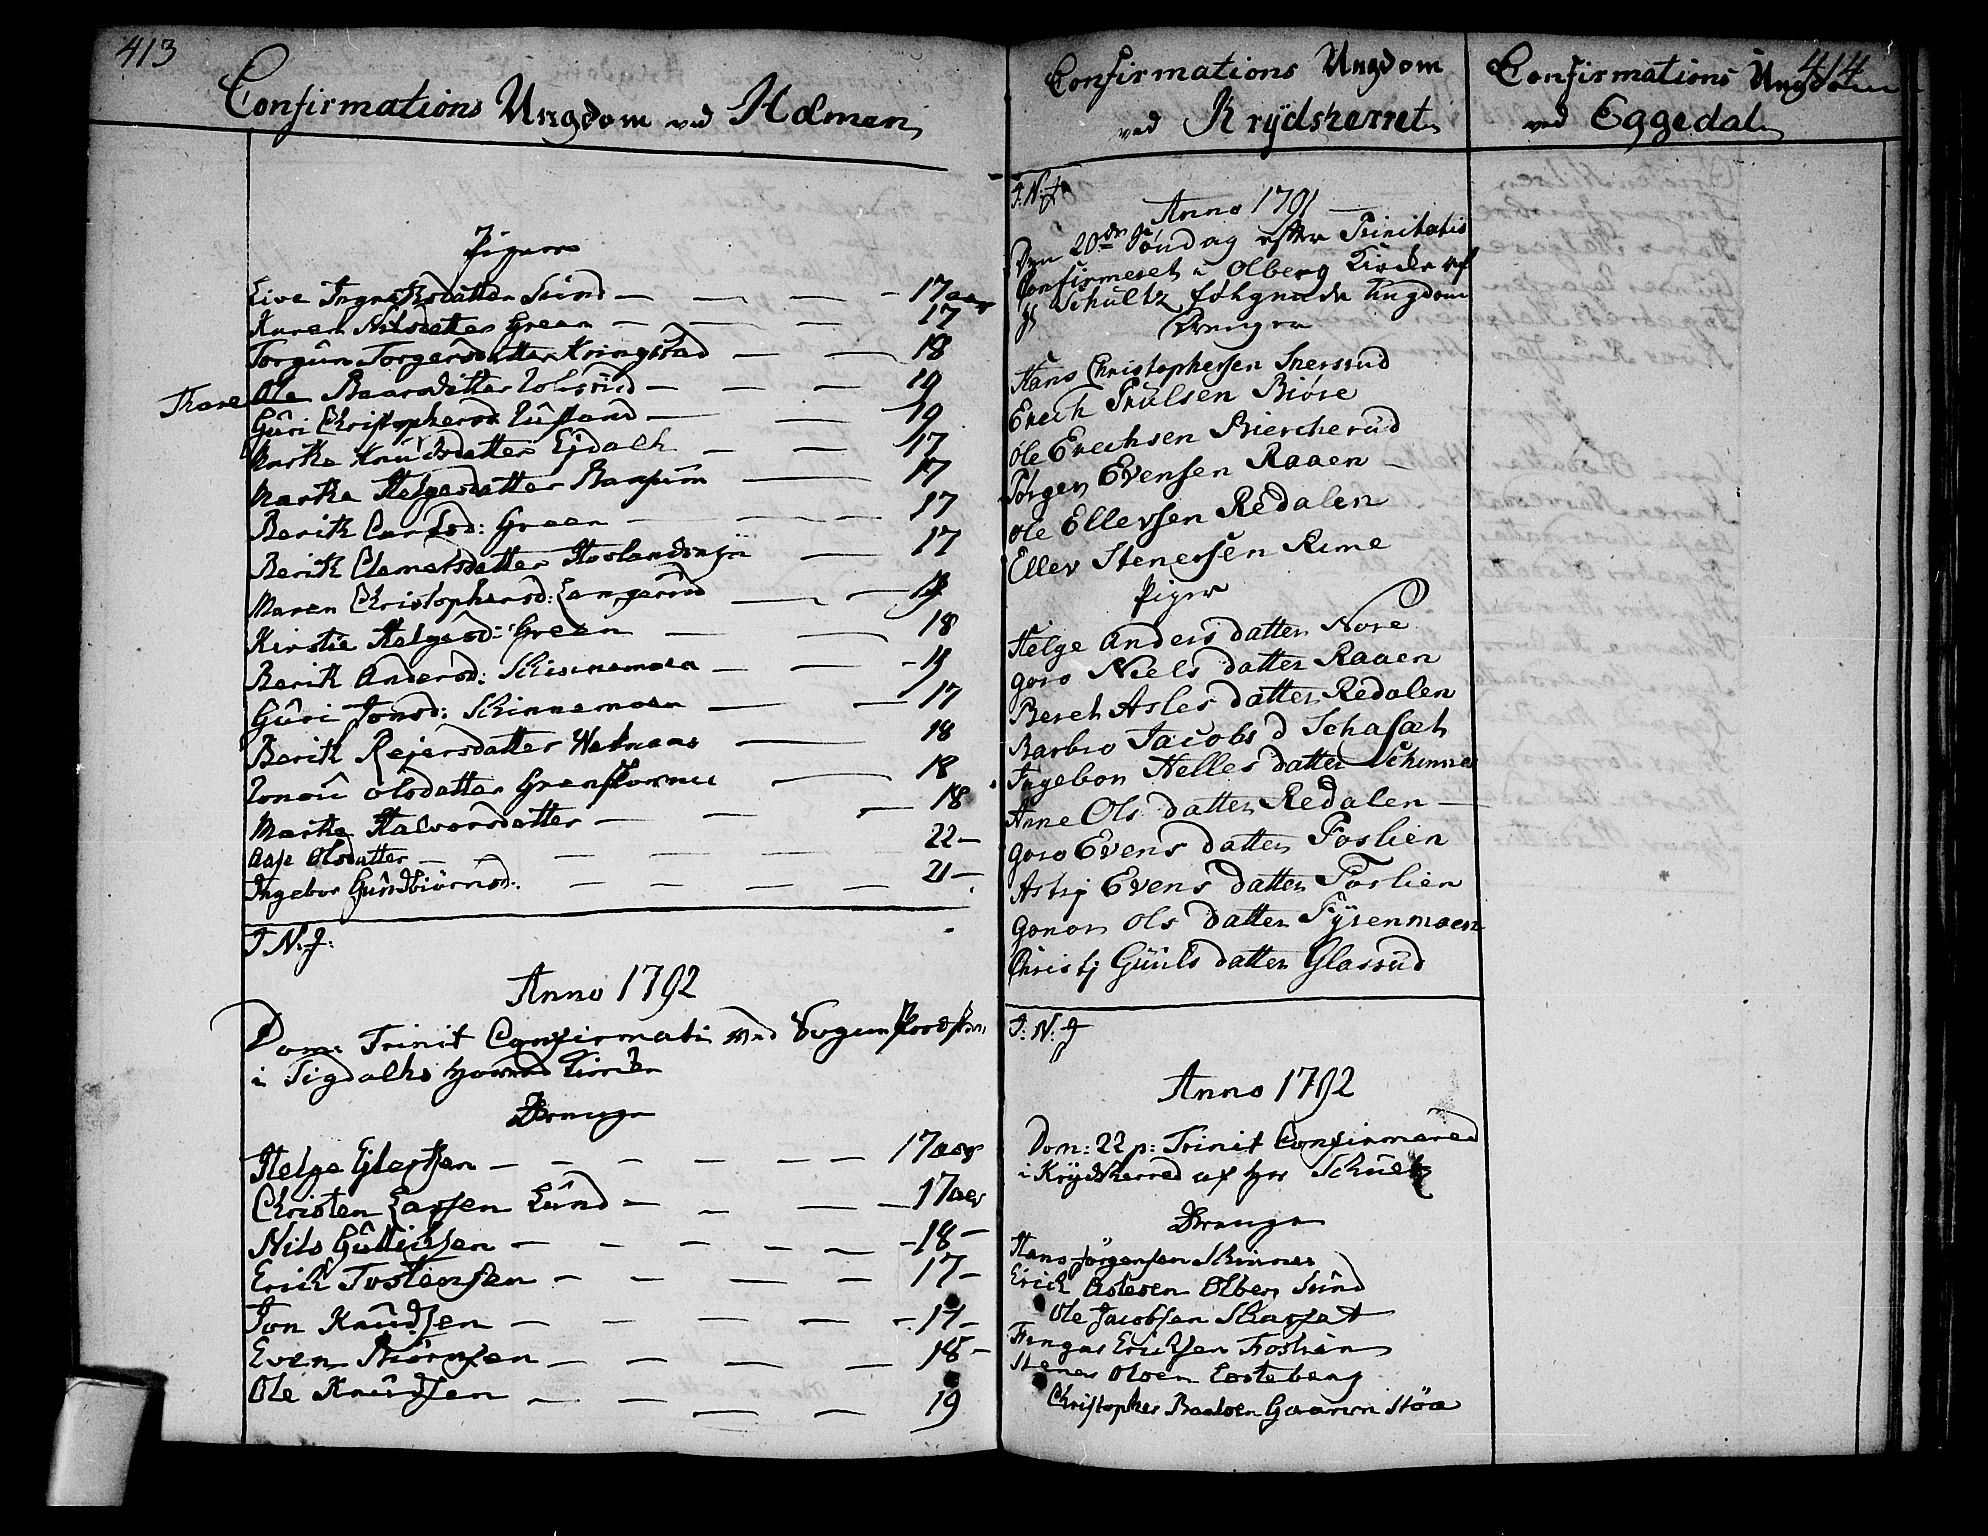 413
Confirmations Ungdom ved Holmen
Piger
Live Ingrebrsdatter Lund — 17 aar
Karen Nilsdatter Green — 17
Torgun Torgersdatter Kringstad — 18
Thore Ole Baarsdatter — 19
Guri Christophersd. — 19
Marthe Knudsdatter Ejdalh — 17
Marthe Helgesdatter — 17
Berith Carlsd: Green — 17
Berith Clemetsdatter — 17
Maren Christophersd: Langerud
Kirstie Helgesd: Green — 18
Berith Andersd: Skinnemoen
Guri Jonsd: Skinnemoen — 17
Berith Rejersdatter — 18
olsdatter — 18
Marthe Halvorsdatter — 18
Aase Olsdatter — 22 —
Ingebor Gundbiörnsd: — 21 —
I. N. J:
Anno 1792
Dom: Trinit Confirmati ved
i Sigdalhs Hoved Kircke
Drenge
Helge — 17 aar
Christen Larsen Lund — 17 aar
Nils — 18 —
Erich Tostensen — 17 —
Jon Knudsen — 17 —
Even Biörnsen — 18 —
Ole Knudsen — 19
Confirmations Ungdom
ved Krydsherret
I. N. J.
Anno 1791
Den 20de Söndag efter Trinitatis
Confirmeret i Olberg Kircke af
Hr Schultz fölgende Ungdom
Drenger
Hans Christophersen Snersrud
Erech Trulsen Biøre
Ole Erechsen Biercherud
Törgen Evensen Raaen —
Ole Ellevsen Redalen
Ellev Stenersen Rime
Piger
Helge Anders datter Nore
Goro Niels datter Raaen
Bereh Asles datter Redalen
Barbro Jacobs d Schafath
Ingebor Helles datter Schinnes
Anne Ols datter Redalen —
Goro Evens datter Foslien
Astrj Evens datter Foslien
Gonor Ols datter Fyrenmoen
Christj Guuls datter Glasrud
I: N: J
Anno 1792
Dom: 22 p: Trinit Confirmered
i Krydsherred af Hr Schultz
Drenge
Hans Jörgensen Skinnes
Erich Aslesen Olberg Sund
Ole Jacobsen Skafat
Fingar Erichsen Foslien
Stener Olsen
Christopher Baadsen Gaaren Stöa
414
Confirmations Ungdom
ved Eggedal